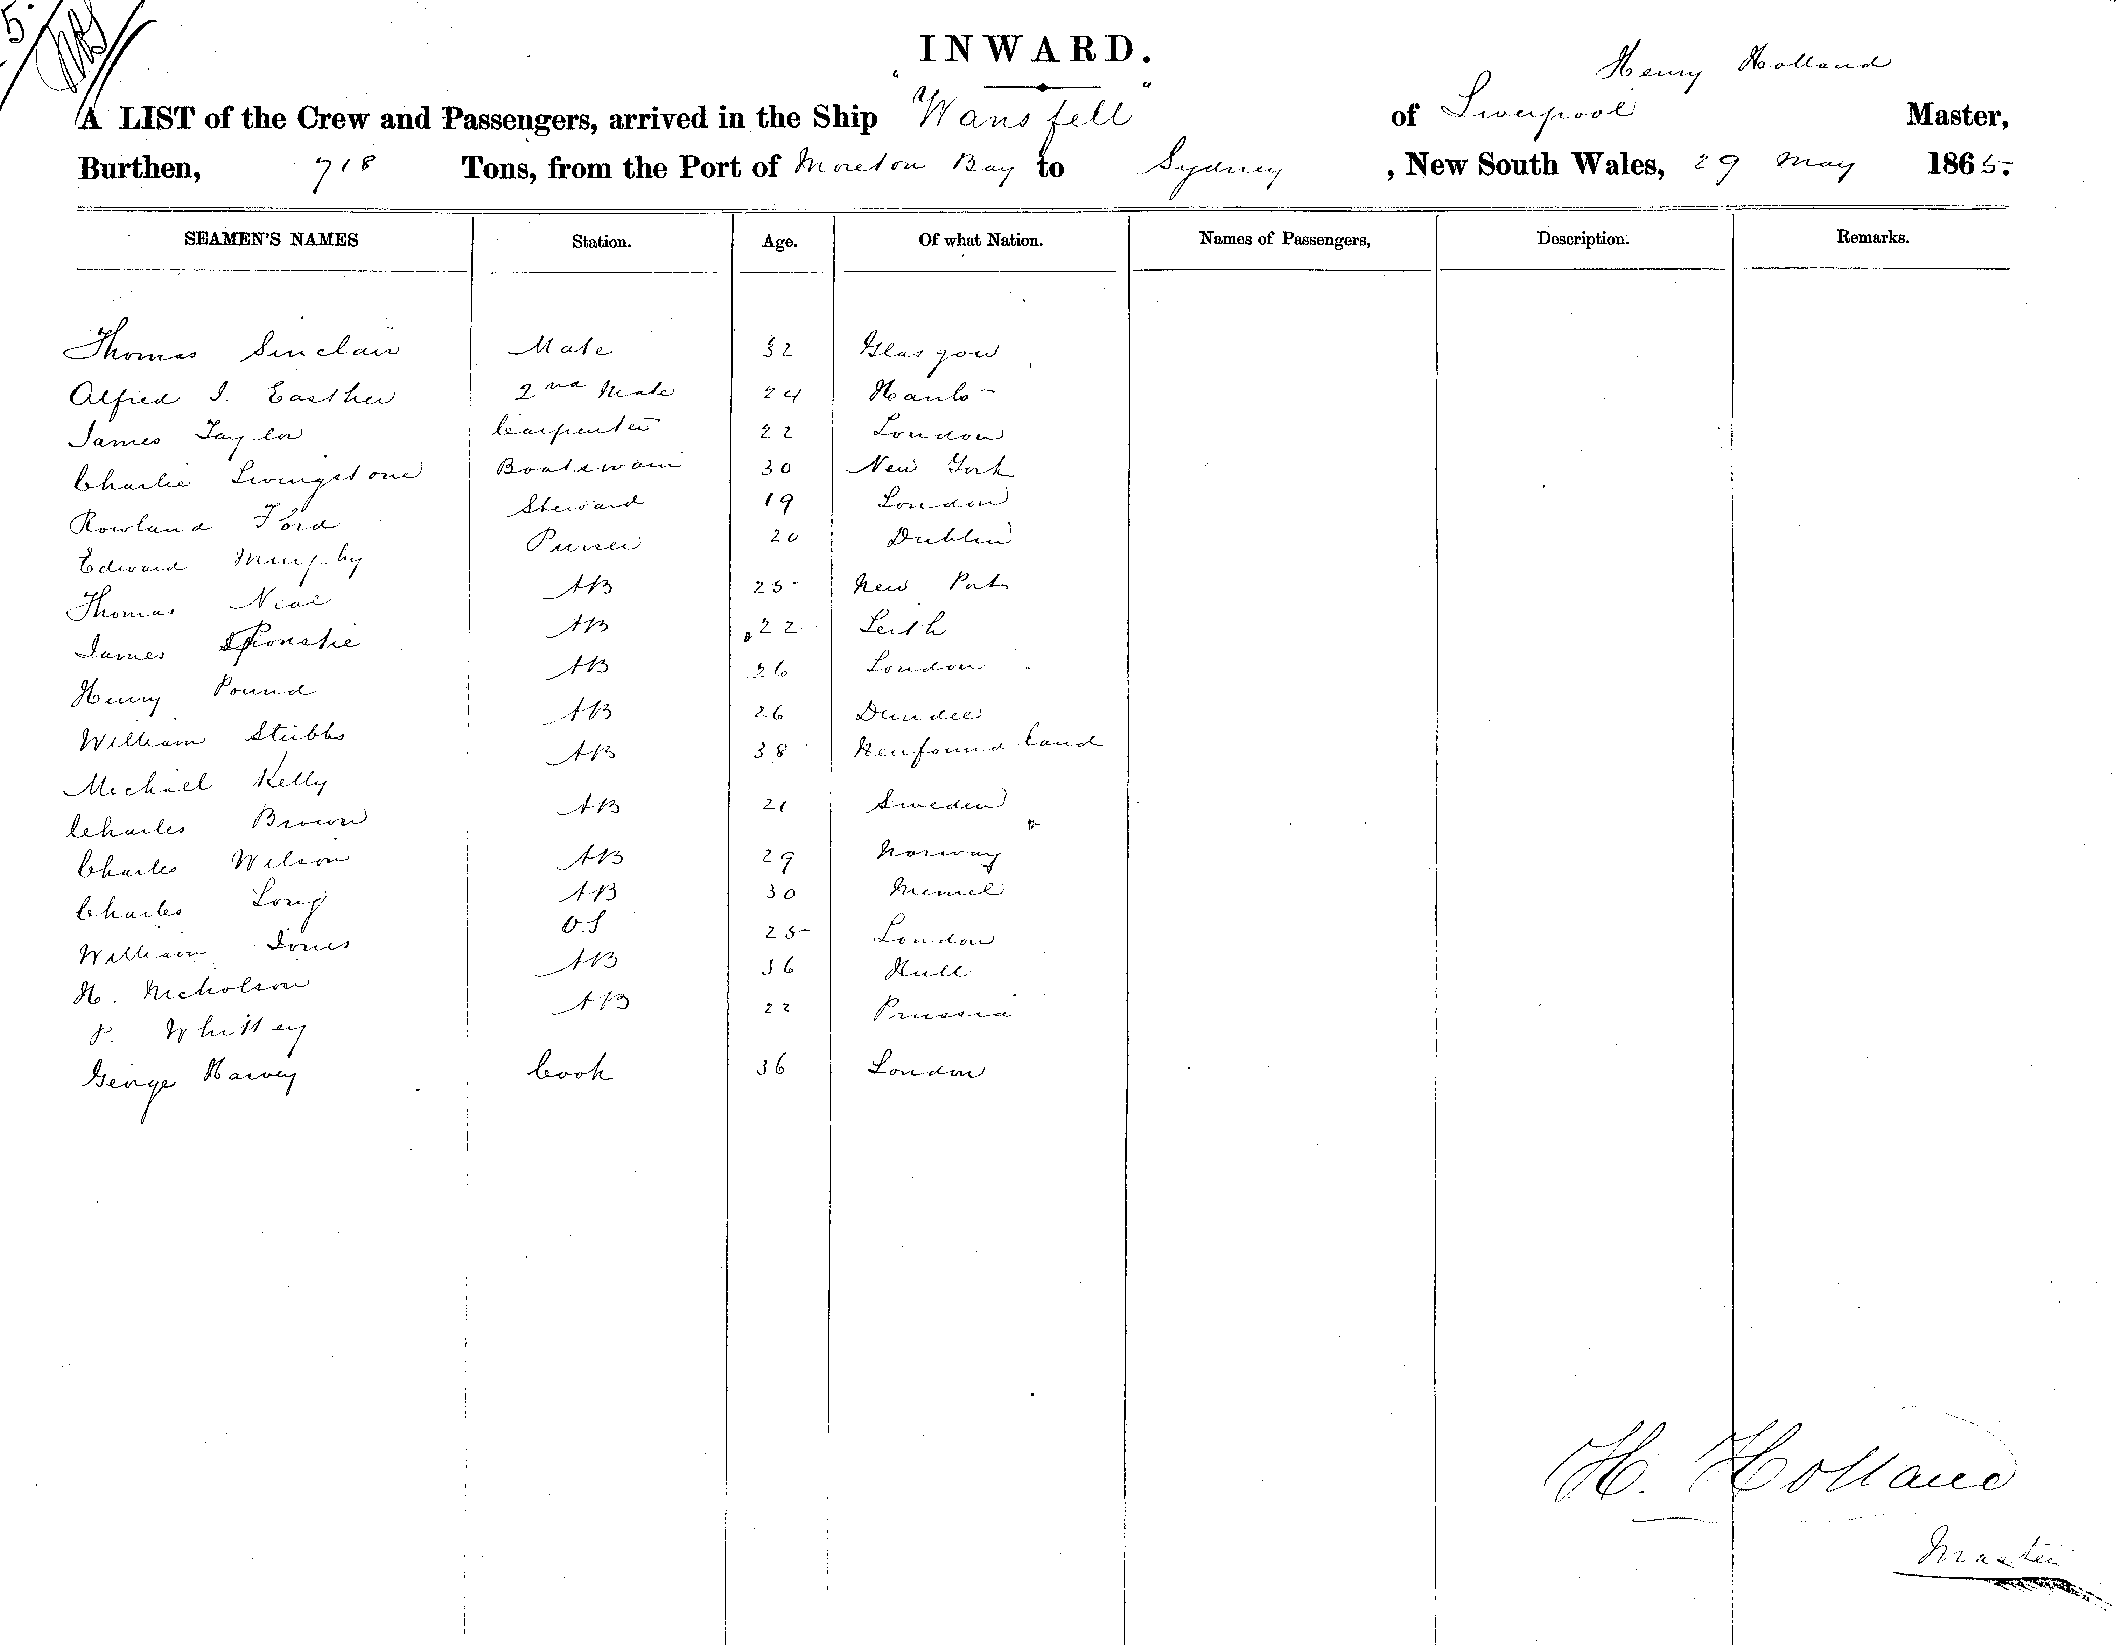 INWARD.
Henry Holland
A LIST of the Crew and Passengers, arrived in the Ship "Wansfell" of Liverpool Master,
Burthen, 718 Tons, from the Port of Moreton Bay to Sydney, New South Wales, 29 May 1865.
SEAMEN'S NAMES Station. Age. Of what Nation. Names of Passengers, Description. Remarks.
Thomas Sinclair Mate 32 Glasgow
Alfred J. Easther 2nd Mate 24 Hants
James Taylor Carpenter 22 London
Charlie Livingstone Boatswain 30 New York
Rowland Ford Steward 19 London
Edward Murphy Purser 20 Dublin
Thomas Neal AB 25 New Port
James AB 22 Leith
Henry Pound AB 26 London
William Stubbs AB 26 Dundee
Michael Kelly AB 38 Newfoundland
Charles Brown AB 21 Sweden
Charles Wilson AB 29 Norway
Charles Long AB 30 Memel
William Jones O.S 25 London
H. Nicholson AB 36 Hull
P. Whittey AB 22 Prussia
George Harvey Cook 36 London
H. Holland
Master